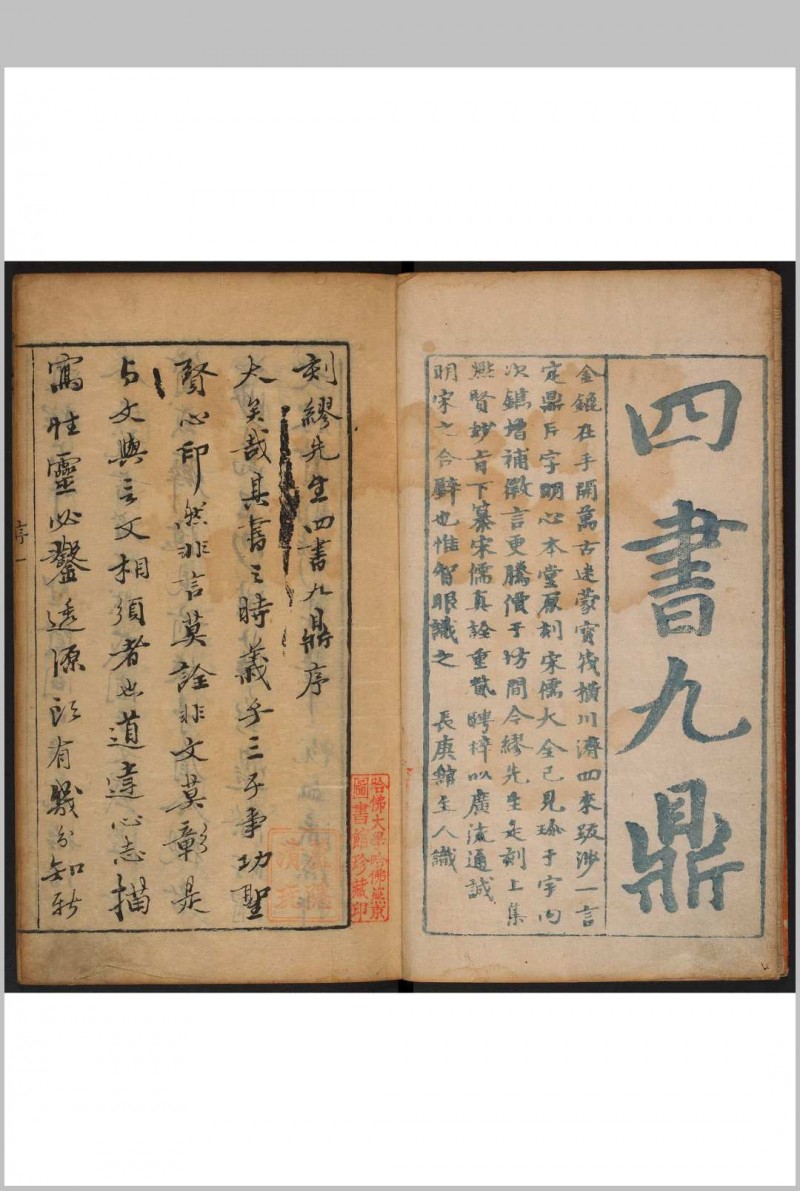 四書九鼎
金鎞在手開萬古迷蒙寶筏橫川濟四來跋涉一言
定鼎片字明心本堂原刻宋儒大全已見瑜于宇内
次鐫增補微言更騰價于坊間今繆先生是刻上集
熙賢妙旨下纂宋儒真詮重貲聘梓以廣流通誠
明宋之合璧也惟智眼識之 長庚館主人識
刻繆先生四書九鼎序
大矣哉其書之時義乎三子事功聖
賢心印然非言莫詮非文莫彰是
與文與言文相須者也道達心志描
寫性靈必鑿透源頭有幾分知新
序
一
哈佛大學哈佛燕京
圖書館珍藏印